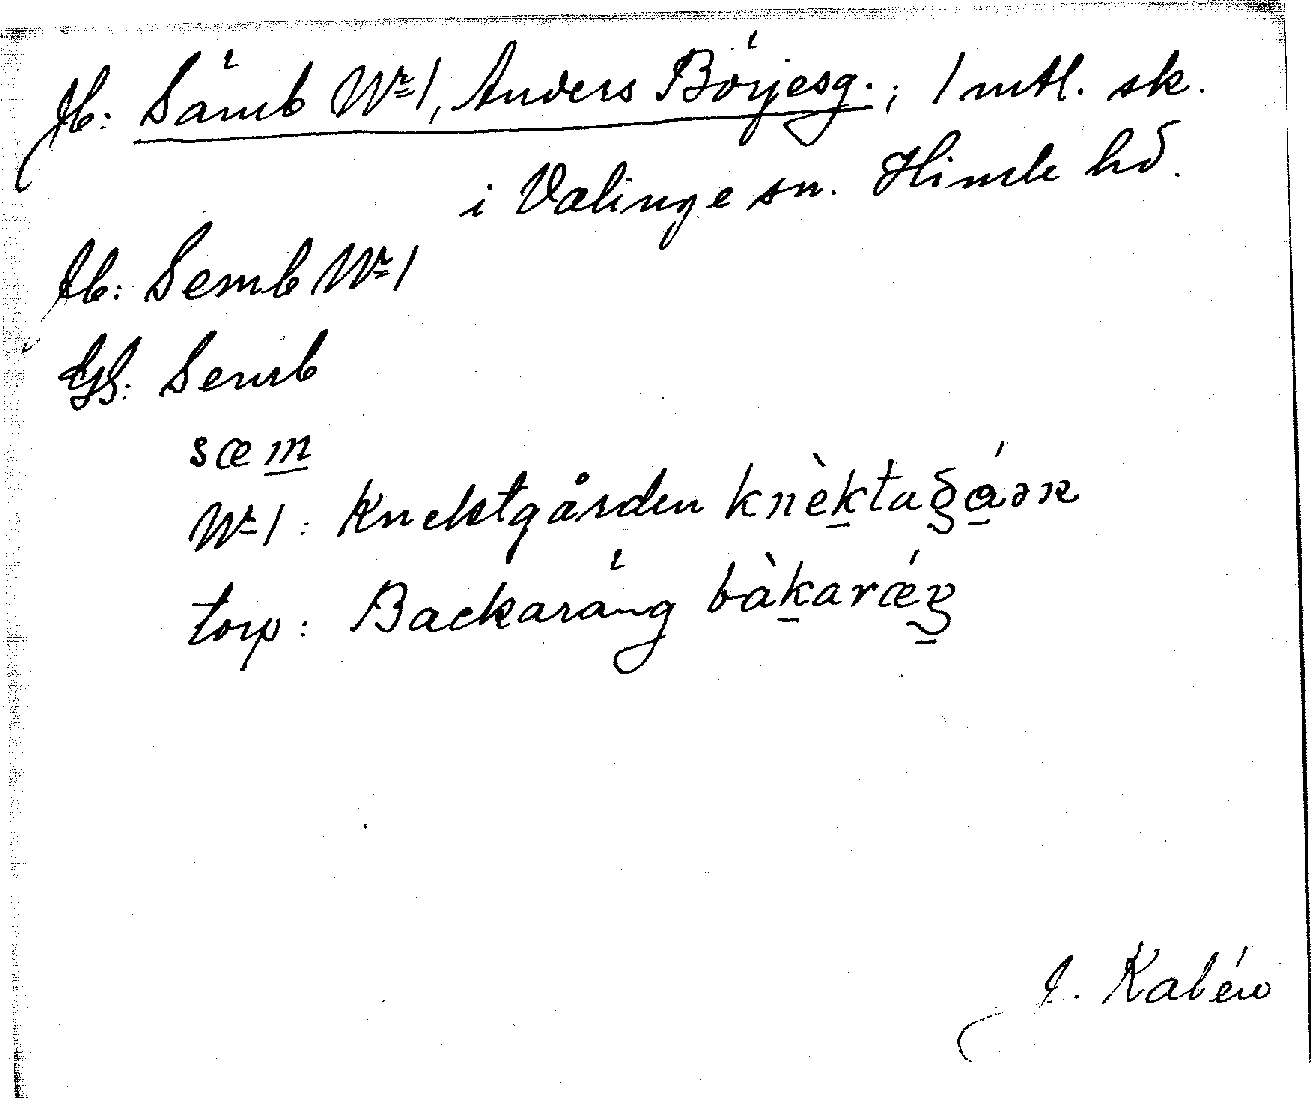 Jb: Sämb No 1, Anders Börjesg.; 1 mtl. sk.
i Valinge sn. Himle hd.
Jb: Semb No 1
GS: Semb
sæm
No 1: Knektgården knèktagɑ́ən
torp: Backaräng bàkarǽŋ
J. Kalén